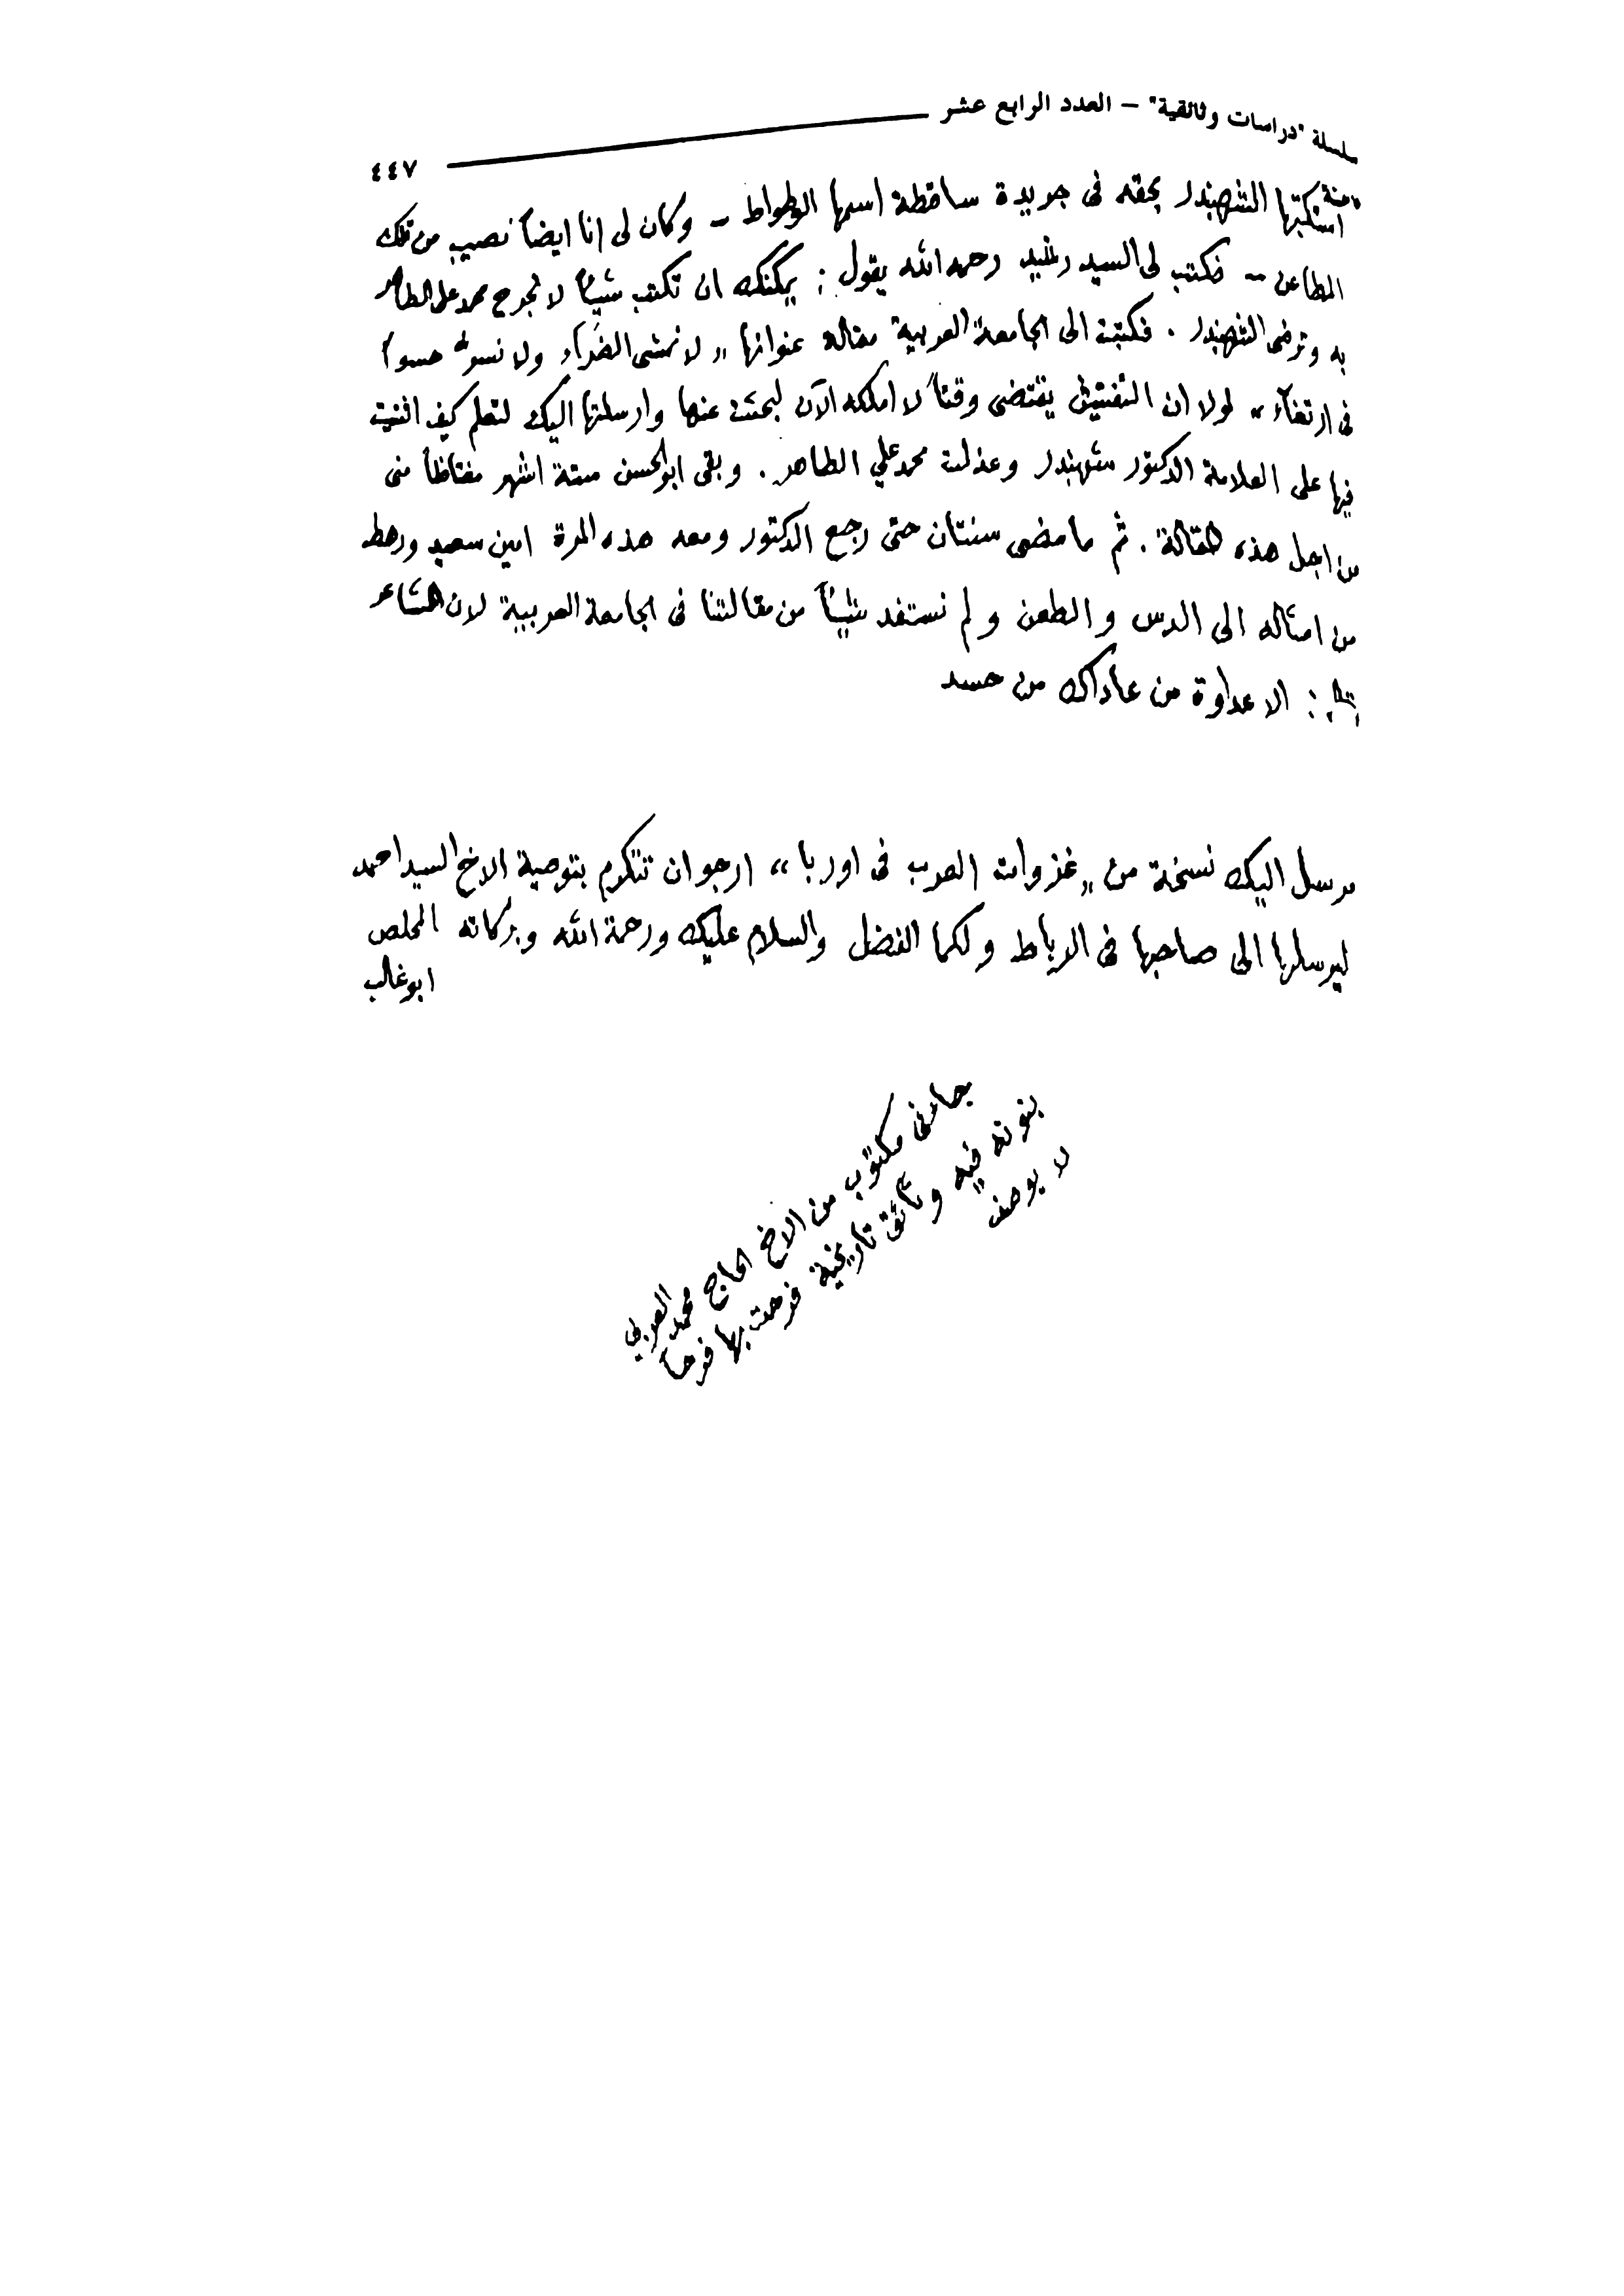 سلسلة "دراسات وثائقية" – العدد الرابع عشر
٤٤٧
استكتبها الشهبندر بحقه فى جريدة ساقطة اسمها الوطواط – وكان لى انا ايضاً نصيب من تلك
المطاعن – فكتب لى السيد رشيد رحمه الله يقول : يمكنك ان تكتب شيئاً لا تجرح محمد على الطاهر
به وترضى الشهبندر . فكتبت الى الجامعة العربية مقاله عنوانها « لا نمشى الضراء ولا نسر حسواً
فى ارتغاء » لولا ان التفتيش يقتضى وقتاً لا املكه الآن لبحثت عنها وارسلتها اليك لتعلم كيف اثنيت
فيها على العلامة الدكتور شهبندر وعذلت محمد علي الطاهر . وبقى ابو الحسن ستة اشهر مغتاظاً منى
من اجل هذه المقالة . ثم ما مضى سنتان حتى رجع الدكتور ومعه هذه المرة امين سعيد ورهط
من امثاله الى الدس والطعن ولم نستفد شيئاً من مقالتنا فى الجامعة العربية لان الشاعر
: الا عداوة من عاداك من حسد
مرسل اليك نسخة من « غزوات العرب فى اوربا » ارجو ان تتكرم بتوصية الاخ السيد احمد
ليرسلها الى صاحبها فى الرباط ولكما الفضل والسلام عليك ورحمة الله وبركاته المخلص
ابو غالب
جاءنى مكتوب من الاخ الحاج محمد العربي
بنونه فيه وثائق تاريخية فرحت بها فرحاً
لا يوصف